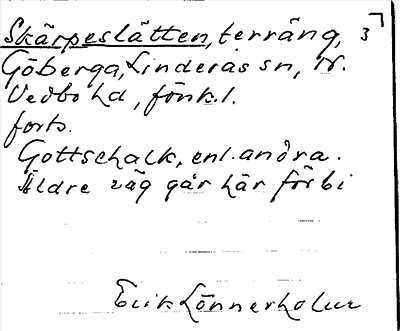 Skärpeslätten, terräng, 3
Göberga, Linderås sn, N.
Vedbo hd, Jönk.l.
forts.
Gottschalk, enl. andra.
Äldre väg går här förbi
Erik Lönnerholm